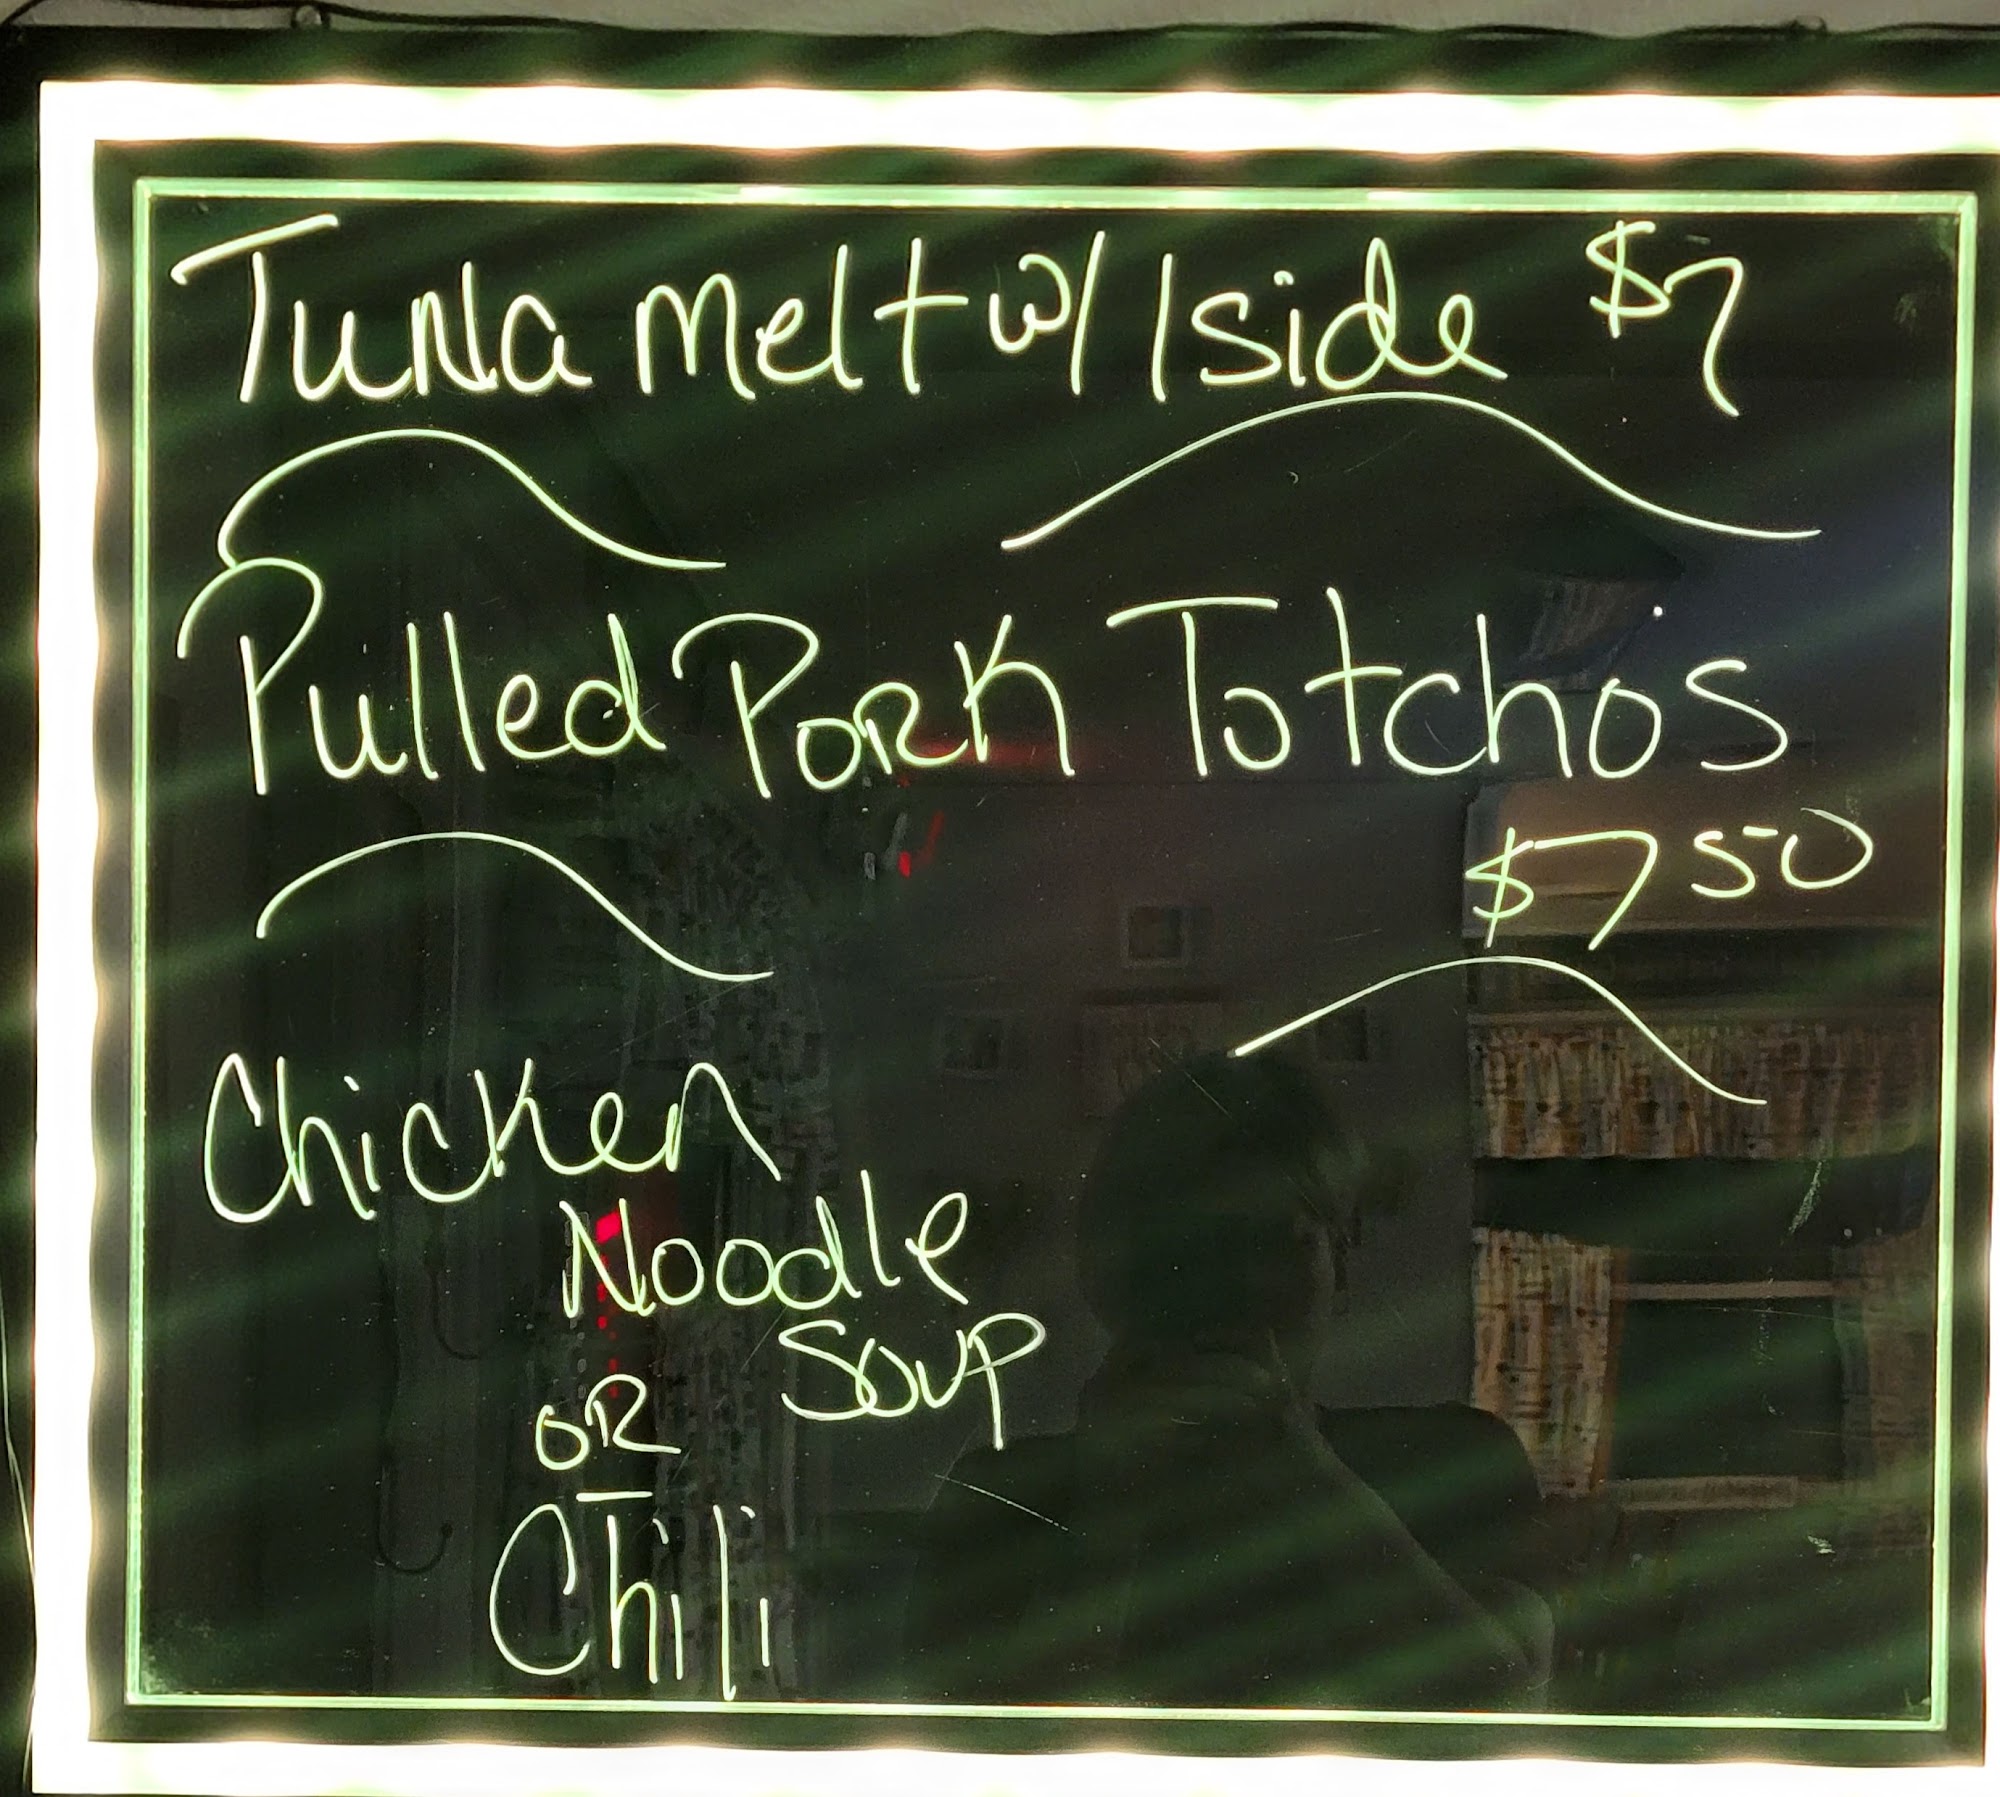 Tuna melt w/ 1 side $7
Pulled Pork Totchos
$7 50
Chicken
Noodle
Soup
OR
Chili